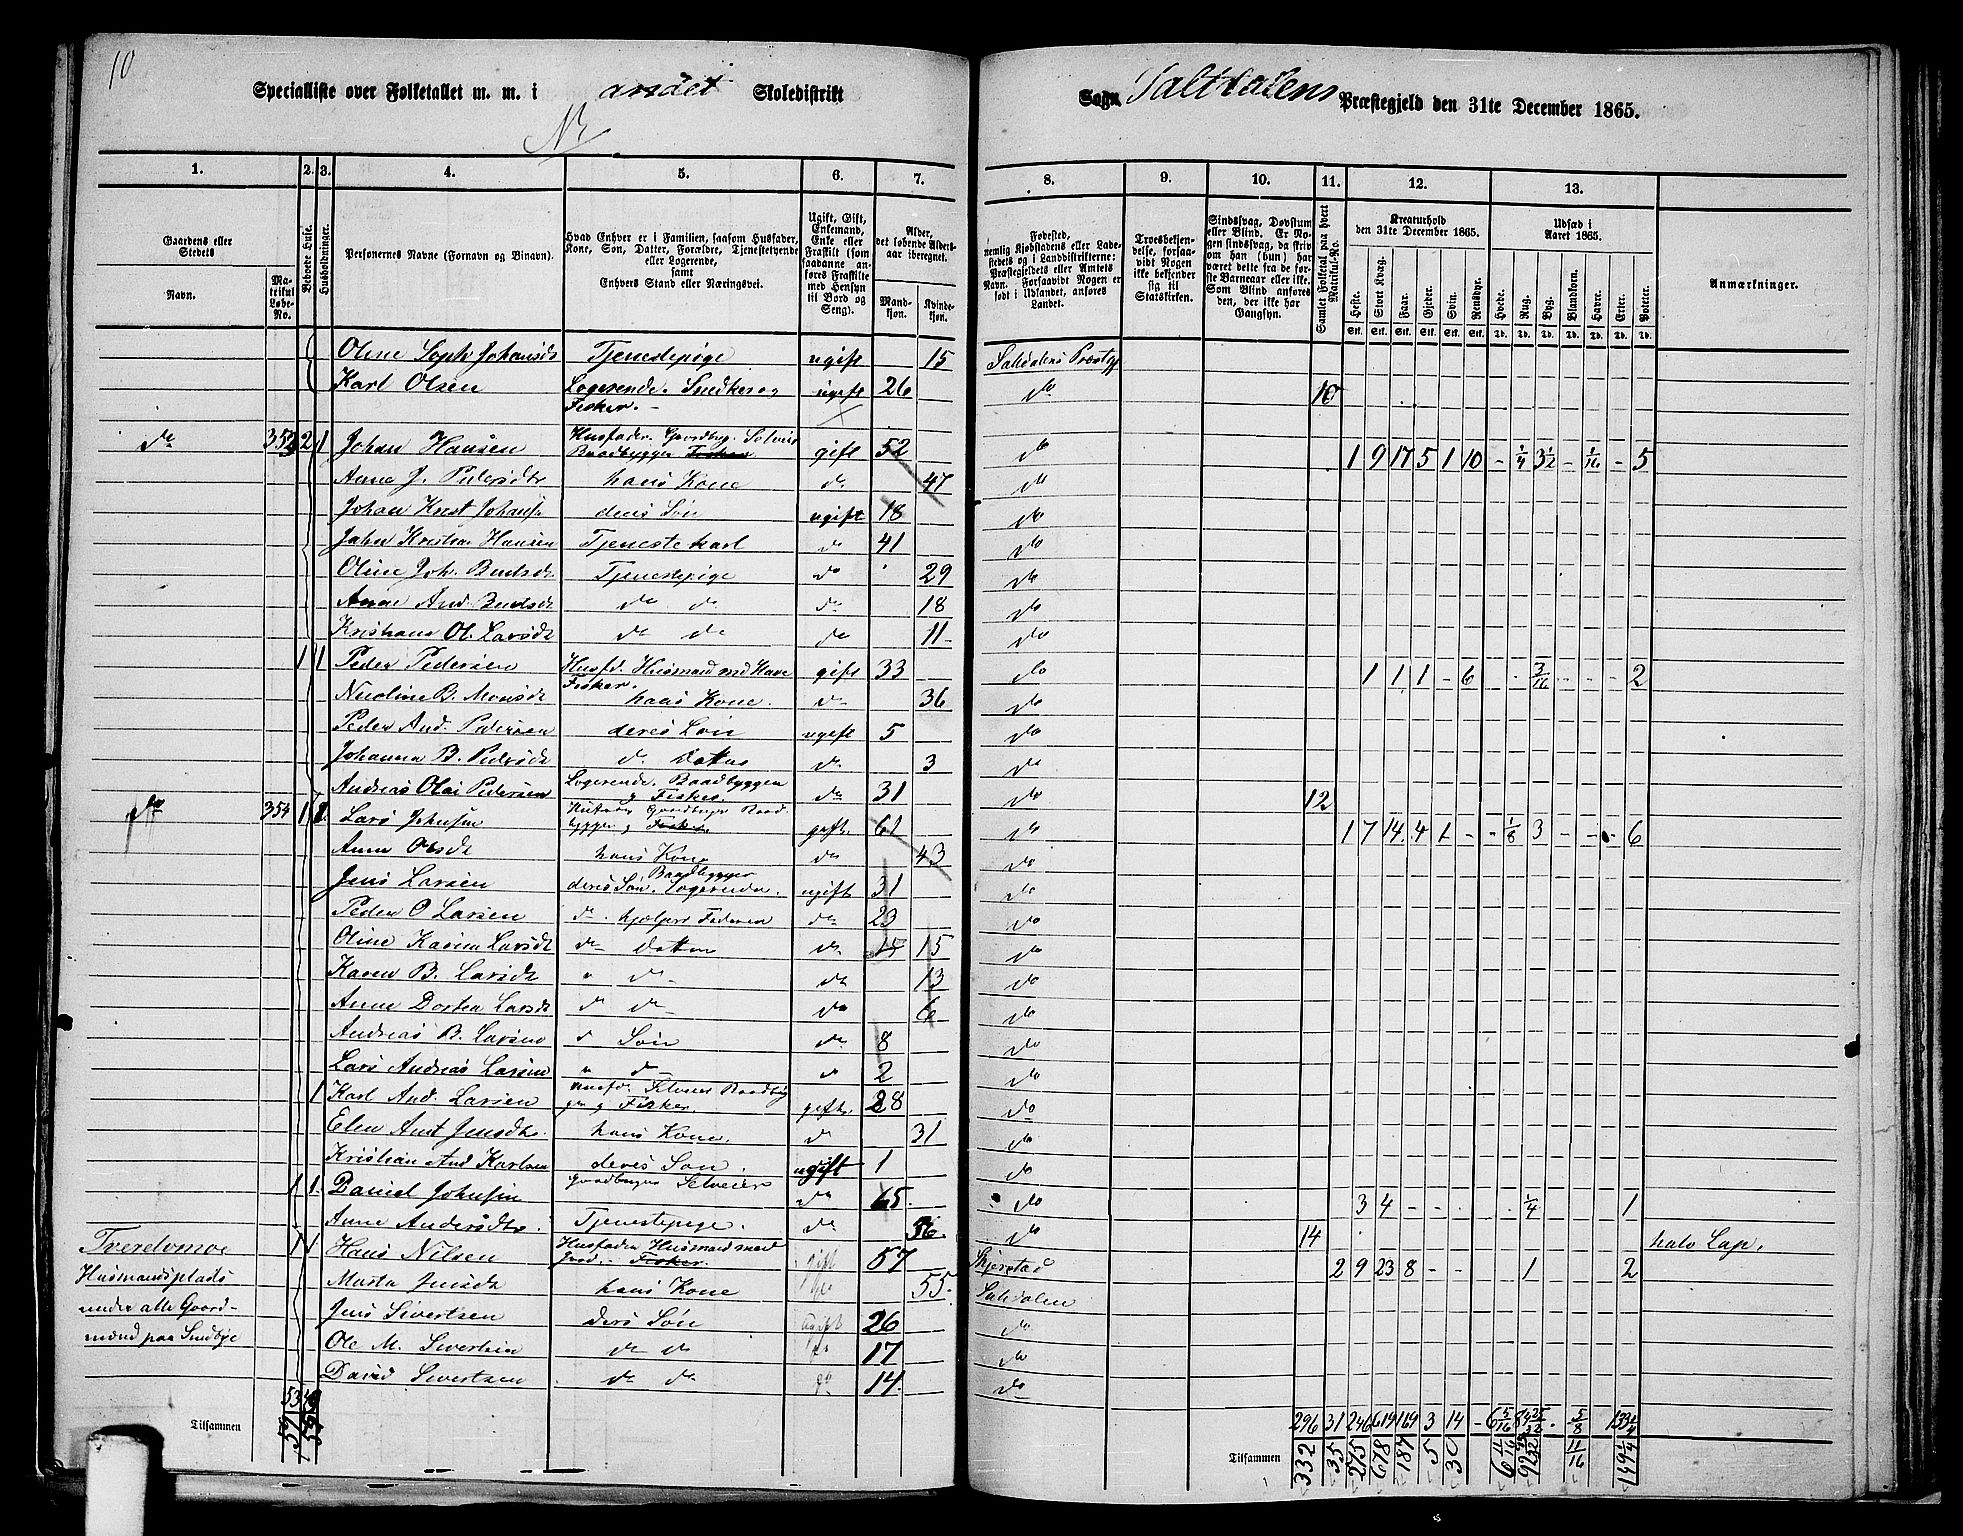 10
Specialliste over Folketallet m. m. i andet Skoledistrikt
Sogn Saltdalens Præstegjeld den 31te December 1865.
1. 2. 3. 4. 5. 6. 7. 8. 9. 10. 11. 12. 13.
Gaardens eller Stedets Navn.
Matrikul Løbe-No.
Beboede Huse.
Husholdninger.
Personernes Navne (Fornavn og Binavn).
Hvad Enhver er i Familien, saasom Husfader, Kone, Søn, Datter, Forældre, Tjenestetyende eller Logerende, samt Enhvers Stand eller Næringsvei.
Ugift, Gift, Enkemand, Enke eller Fraskilt (som saadanne anføres Fraskilte med Hensyn til Bord og Seng).
Alder, det løbende Aldersaar iberegnet.
Mandkjøn. Kvindekjøn.
Fødested, nemlig Kjøbstadens eller Ladestedets og i Landdistrikterne: Præstegjeldets eller Amtets Navn. Forsaavidt Nogen er født i Udlandet, anføres Landet.
Troesbekjendelse, forsaavidt Nogen ikke bekjender sig til Statskirken.
Sindssvag, Døvstum eller Blind. Er Nogen sindssvag, da skriv om han (hun) har været dette fra de første Barneaar eller ikke. Som Blind anføres den, der ikke har Gangsyn.
Samlet Folketal paa hvert Matrikul-No.
Kreaturhold den 31te December 1865.
Heste. Stort Kvæg. Faar. Gjeder. Svin. Rensdyr.
Udsæd i Aaret 1865.
Hvede. Rug. Byg. Blandkorn. Havre. Erter. Poteter.
Anmærkninger.
Oline Soph Johansdt Tjenestepige ugift 15 Saltdalens Præstgj
Karl Olsen Logerende. Snedker og Fisker. ugift 26 do 10
do 353 2 1 Johan Hansen Husfader. Gaardbrg. Selveier Baadbygger Fisker gift 52 do 1 9 17 5 1 10 - 1/4 3 1/2 - 1/16 - 5
Anne J. Pedersdtr hans Kone do 47 do
Johan Krist Johans deres Søn ugift 18 do
John Kristian Hansen Tjenestekarl do 41 do
Oline Joh. Bentsdt Tjenestepige do 29 do
Anne And Bentsdt do do do 18 do
Kristiana Ol. Larsdt do do do 11 do
1 1 Peder Pedersen Husfd. Husmand med Have Fisker. gift 33 do 1 1 1 - 6 - - 3/16 - - - 2
B. Monsdt hans Kone. do 36 do
Peder And. Pedersen deres Søn ugift 5 do
Johanna B. Pedersdt do Datter do 3 do
Andreas Olai Pedersen Logerende. Baadbygger og Fisker. do 31 do 12
do 354 1 Lars Johnsen Gaardbruger Baadbygger og Fisker gift 61 do 1 7 14 4 1 - - 1/8 3 - - - 6
Anne Olsdt hans Kone do 43 do
Jens Larsen deres Søn. Logerende. Baadbygger ugift 31 do
Peder O Larsen do. hjælper Faderen do 23 do
Oline Karina Larsdt do Datter do 15 do
Karen B. Larsdt " do do 13 do
Anne Dortea Larsdt do do do 6 do
Andreas B. Larsen do Søn do 8 do
Lars Andreas Larsen " do do 2 do
1 Karl And. Larsen Husfd. Selveier Baadbygger og Fisker gift 28 do
Elen Jensdtr. hans Kone. do 31 do
Kristian And Karlsen deres Søn. ugift 1 do
1 1. Daniel Johnsen Gaardbruger Selveier do 65. do 3 4 - - - - 1/4 1
Anne Andersdtr. Tjenestepige. do 56. do 14
Tverelvmoe 1 1 Hans Nilsen Husfader Husmand med Jord. Fisker. gift 57 Skjerstad 2 9 23 8 - - 1 2 halv Lap.
Husmandsplads Marta Jensdt hans Kone do 55. Saltdalen
under alle Gaard- Jens Sivertsen deres Søn ugift 26 do
mænd paa Ole M. Sivertsen do do do 17 do
David Sivertsen do do do 14. do
Tilsammen
Tilsammen 296 31 246 619 169 3 14 - 6 5/16 84 25/32 - 5/8 133 1/4
332 35 275 678 187 5 30 6 11/16 11/16 149 1/4